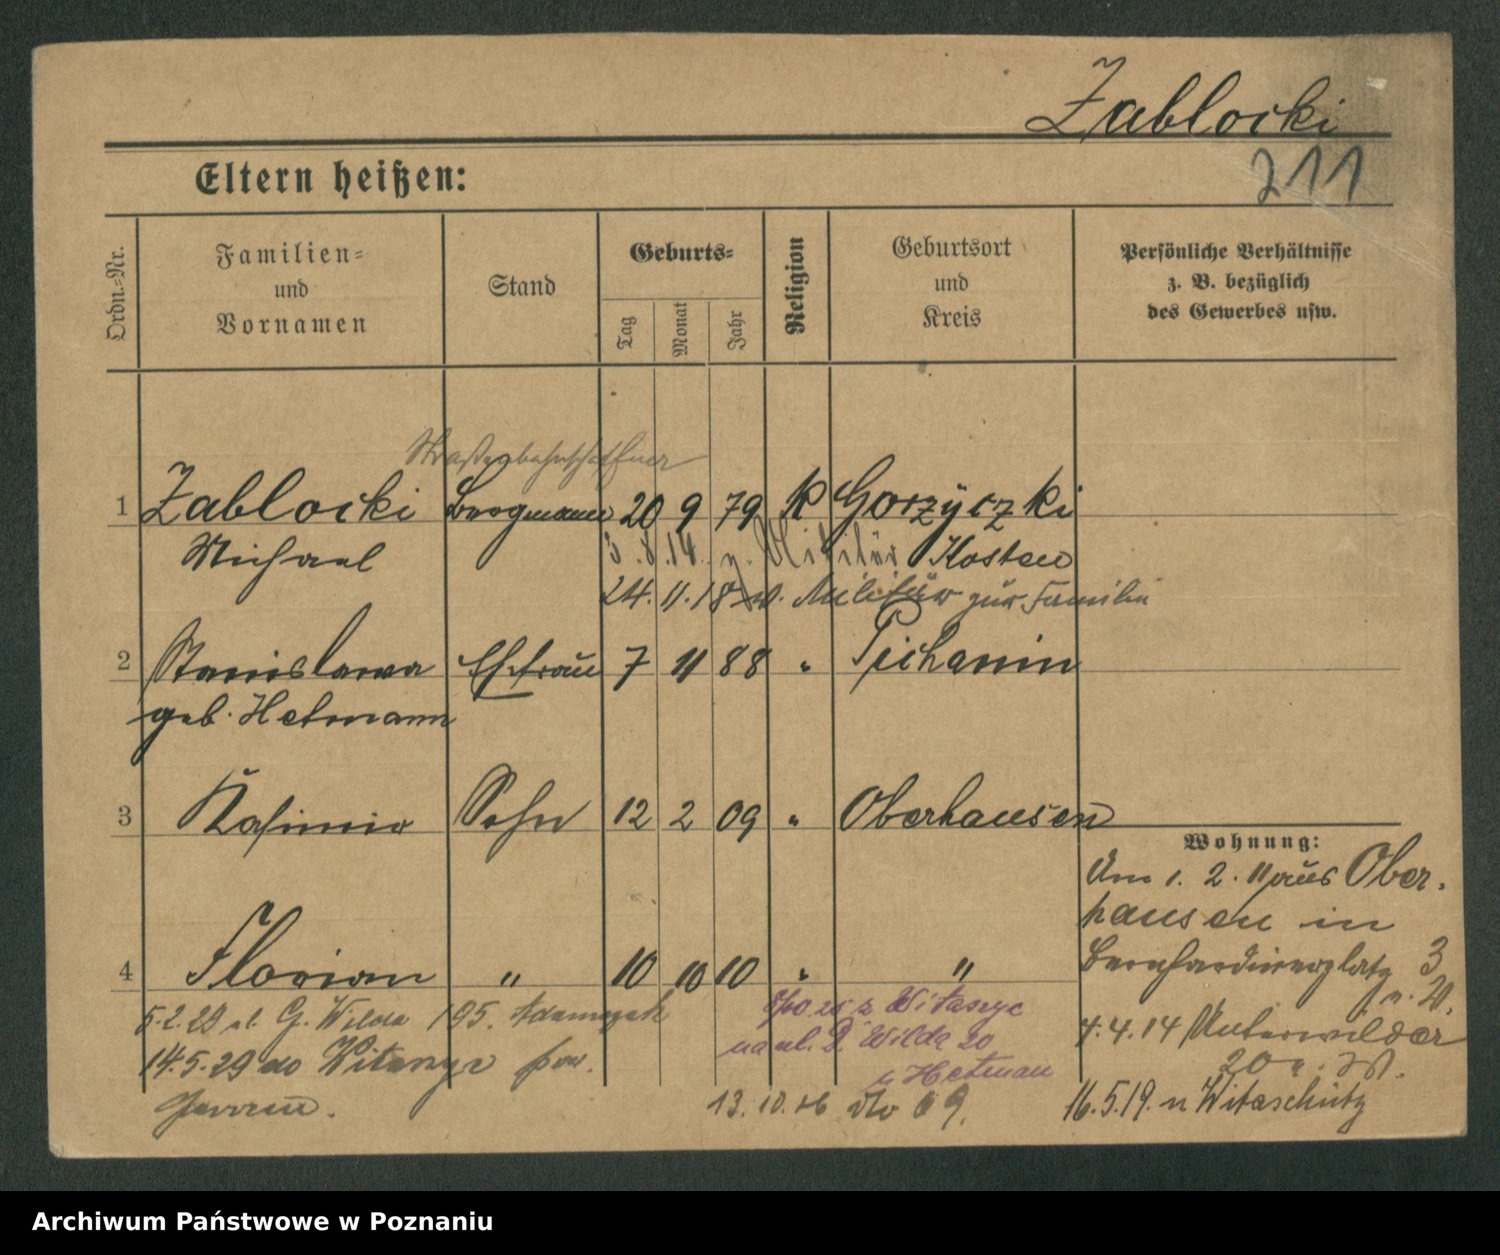 Zablocki
211
Eltern heißen:
Ordn.-Nr.
Familien-
und
Vornamen
Stand
Geburts-
Tag
Monat
Jahr
Religion
Geburtsort
und
Kreis
Persönliche Verhältnisse
z. B. bezüglich
des Gewerbes usw.
Straßenbahnschaffner
1 Zablocki Bergmann 20 9 79 K Gorzyczki
Michael 3.8.14. z. Militär Kosten
24.11.18 v. Militär zur Familie
2 Stanislawa Ehefrau 7 11 88 " Pichanin
geb. Hetmann
3 Kasimir Sohn 12 2 09 " Oberhausen
Wohnung:
Am 1. 2. 11 aus Ober-
hausen in
Bernhardinerplatz 3
4 Florian " 10 10 10 " "
20.
5.2.29 ul. G. Wilda 105. Adamczak
z Witaszyc
4.4.14 Unterwilder
14.5.29 do Witaszyc pow.
na ul. D. Wilda 20
20
u Hetman
Jarocin.
13.10.
16.5.19. n Witaschütz
Archiwum Państwowe w Poznaniu